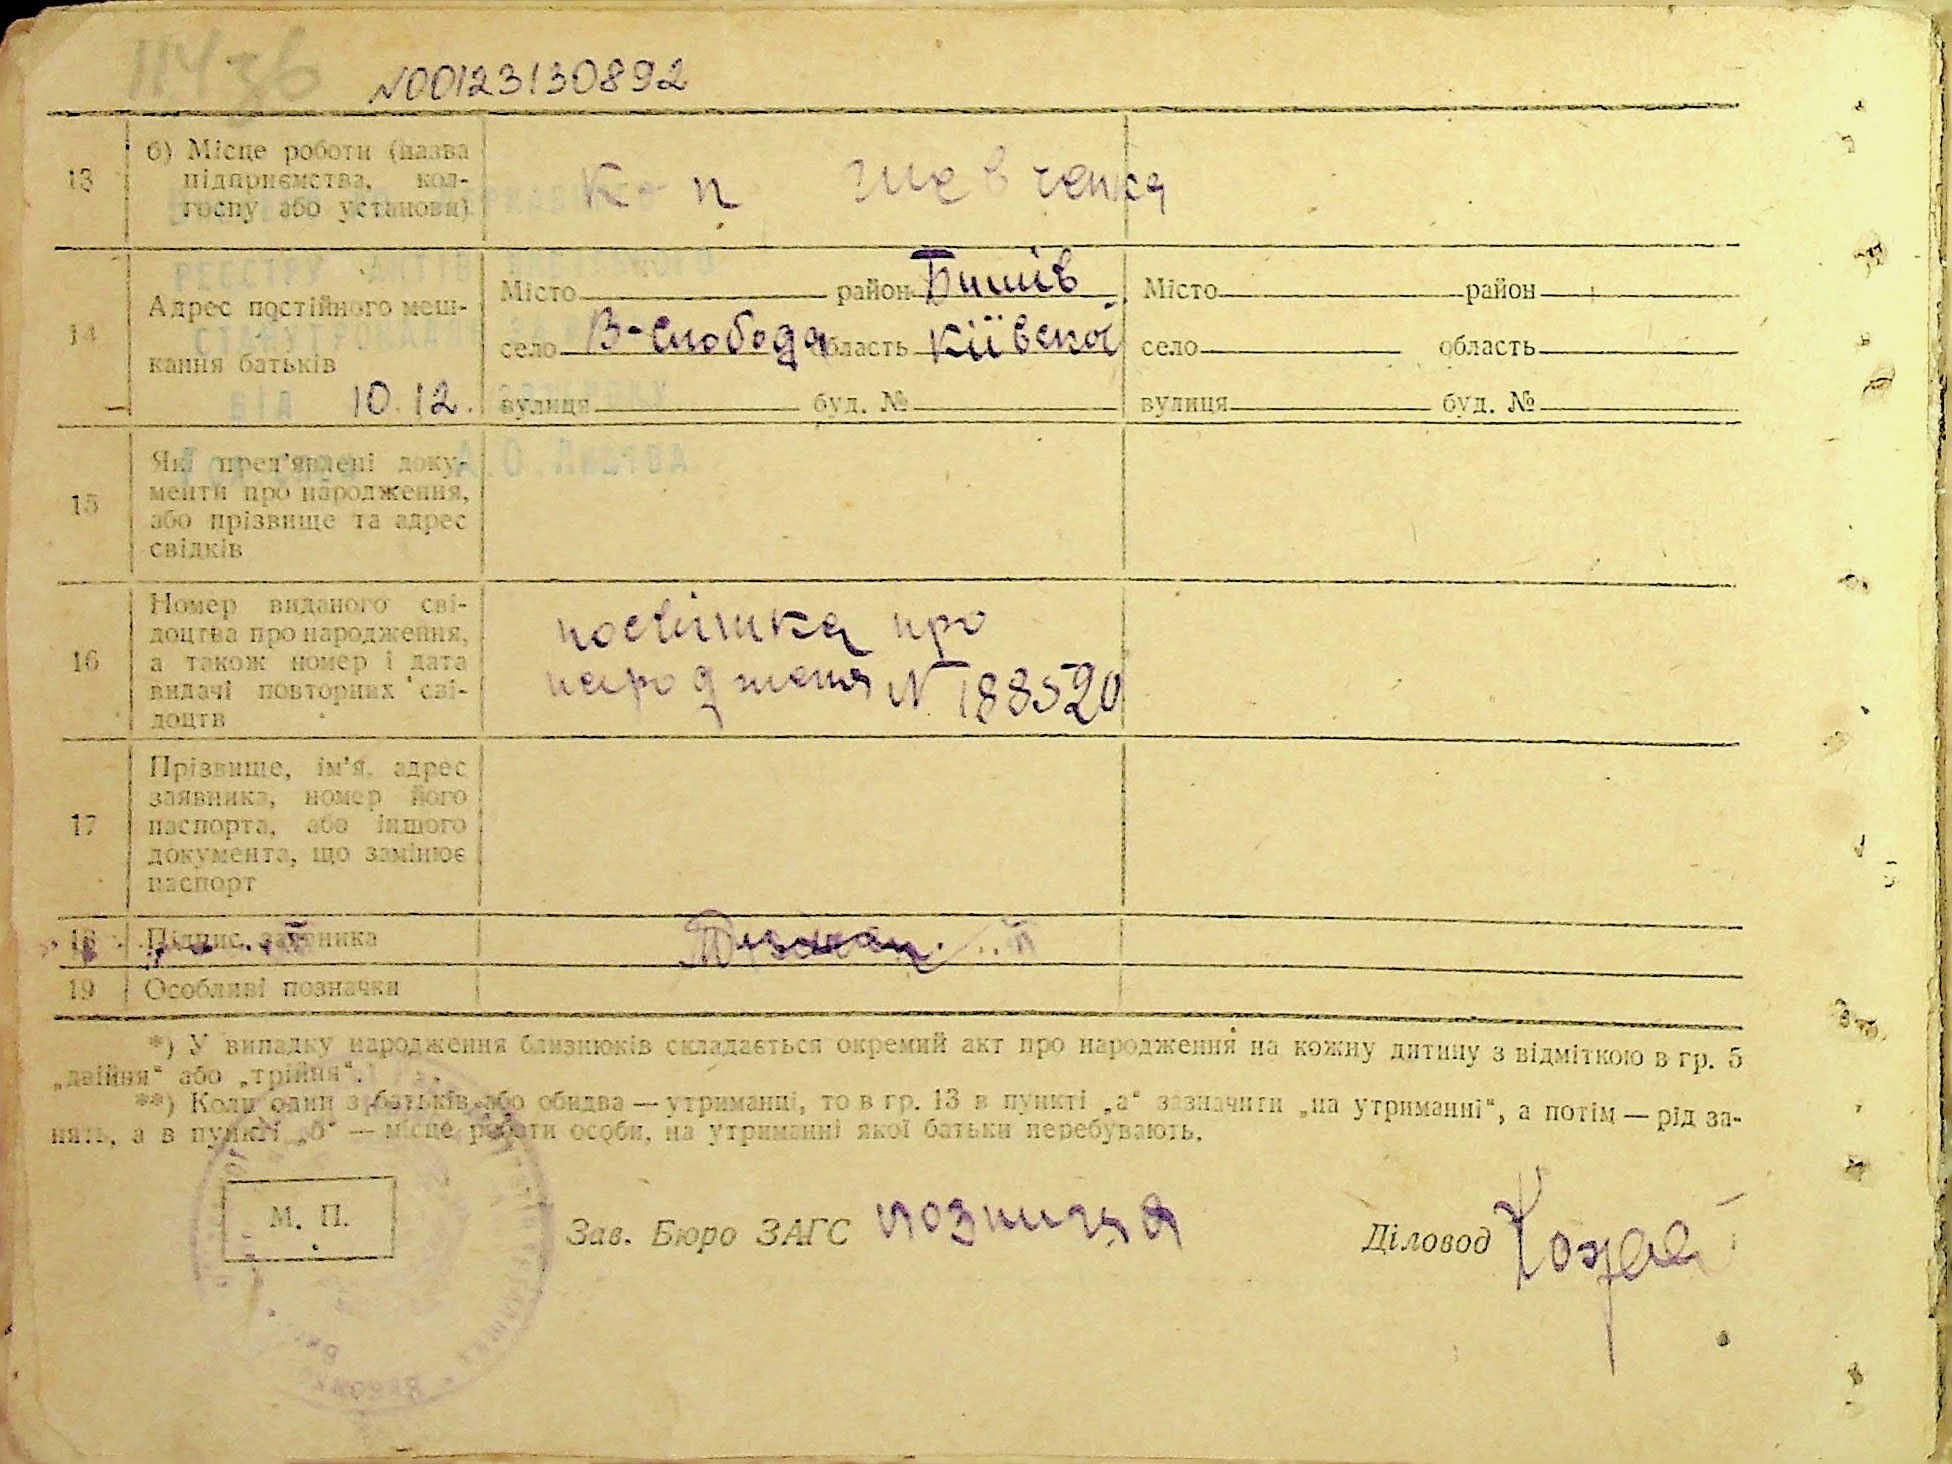 №00123130892
13
б) Місце роботи (назва
підприємства, кол-
госпу або установи)
К-п Шевченка
14
Адрес постійного меш-
кання батьків
10.12.
Місто район Бишів
село В-Слобода область Київської
вулиця буд. №
Місто район
село область
вулиця буд. №
15
Які пред'явлені доку-
менти про народження,
або прізвище та адрес
свідків
16
Номер виданого сві-
доцтва про народження,
а також номер і дата
видачі повторних сві-
доцтв
посвітка про
народження № 188520
17
Прізвище, ім'я, адрес
заявника, номер його
паспорта, або іншого
документа, що замінює
паспорт
18
Підпис заявника
19
Особливі позначки
*) У випадку народження близнюків складається окремий акт про народження на кожну дитину з відміткою в гр. 5
„двійня“ або „трійня“.
**) Коли один з батьків або обидва — утриманці, то в гр. 13 в пункті „а“ зазначити „на утриманні“, а потім — рід за-
нять, а в пункті „б“ — місце роботи особи, на утриманні якої батьки перебувають.
М. П.
Зав. Бюро ЗАГС
Діловод